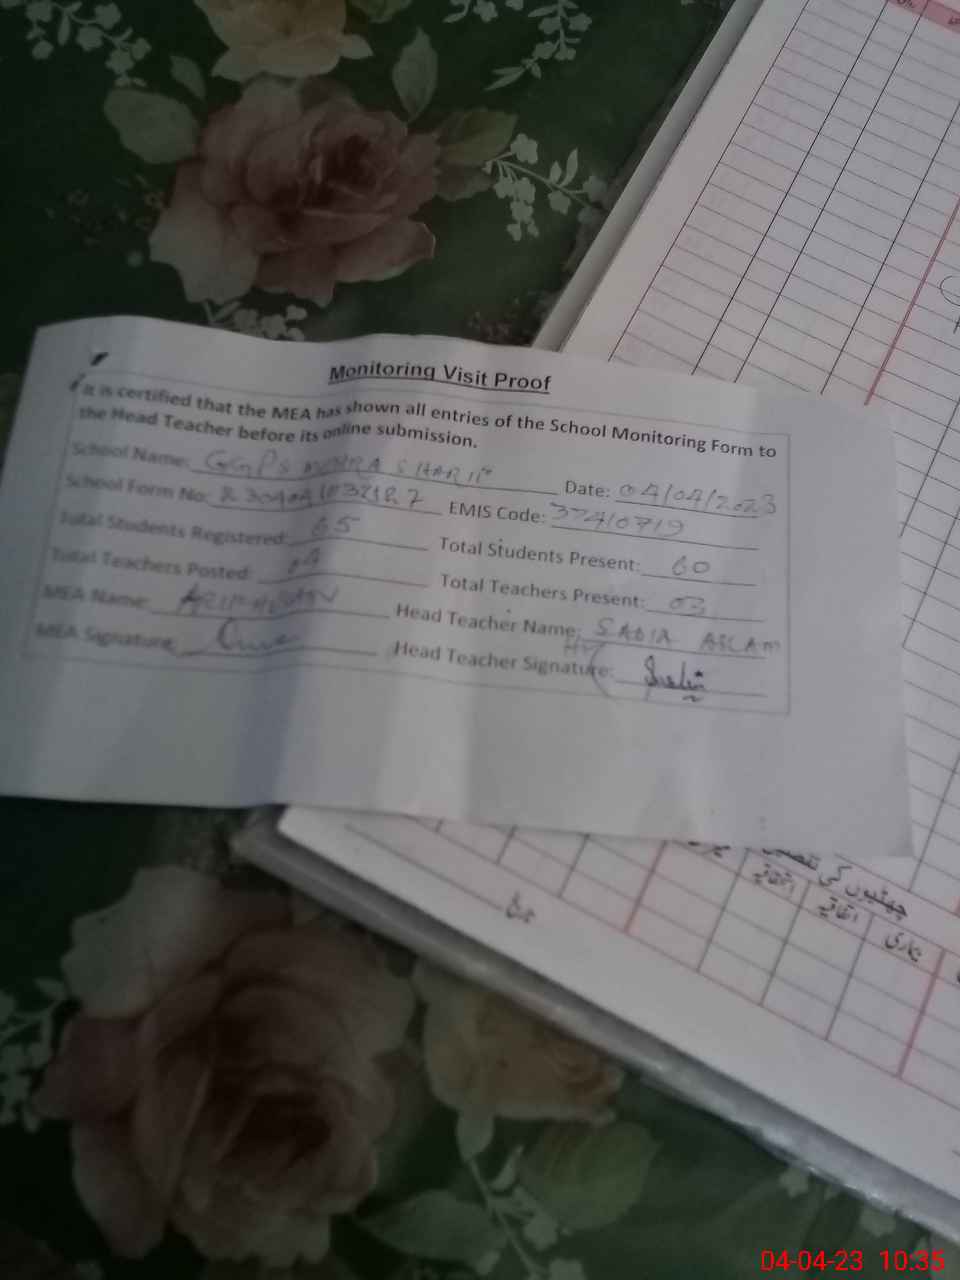 Monitoring Visit Proof
It is certified that the MEA has shown all entries of the School Monitoring Form to
the Head Teacher before its online submission.
School Name: GGPS MOHRA SHARIF Date: 04/04/2023
School Form No: EMIS Code: 37410719
Total Students Registered: 65 Total Students Present: 60
Total Teachers Posted: 04 Total Teachers Present: 03
MEA Name: Head Teacher Name: SADIA ASLAM
MEA Signature: Head Teacher Signature:
چھٹیوں کی
اتفاقیہ بیماری
04-04-23 10:35